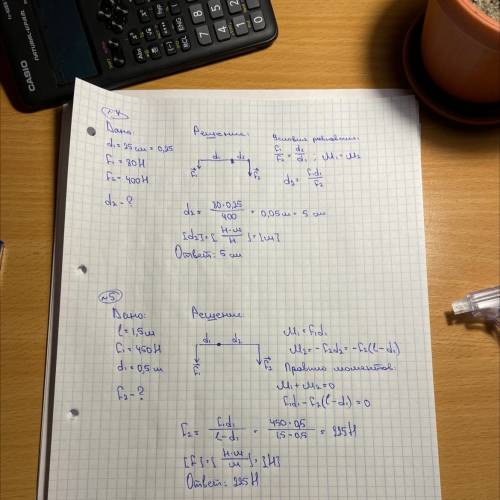 CASIO
7 8 9
4 5 6
1 2 3
0
ENG
№4
Дано:
d₁ = 25 см = 0,25
F₁ = 80 Н
F₂ = 400 Н
d₂ - ?
Решение:
d₁ d₂
F₁ F₂
Условия равновесия:
F₁/F₂ = d₂/d₁ ; M₁ = M₂
d₂ = F₁d₁/F₂
d₂ = 80·0,25/400 = 0,05 м = 5 см
[d₂] = [Н·м/Н] = [м]
Ответ: 5 см
№5
Дано:
l = 1,5 м
F₁ = 450 Н
d₁ = 0,5 м
F₂ - ?
Решение:
d₁ d₂
F₁ F₂
M₁ = F₁d₁
M₂ = -F₂d₂ = -F₂(l-d₁)
Правило моментов:
M₁ + M₂ = 0
F₁d₁ - F₂(l-d₁) = 0
F₂ = F₁d₁/l-d₁ = 450·0,5/1,5-0,5 = 225 Н
[F] = [Н·м/м] = [Н]
Ответ: 225 Н